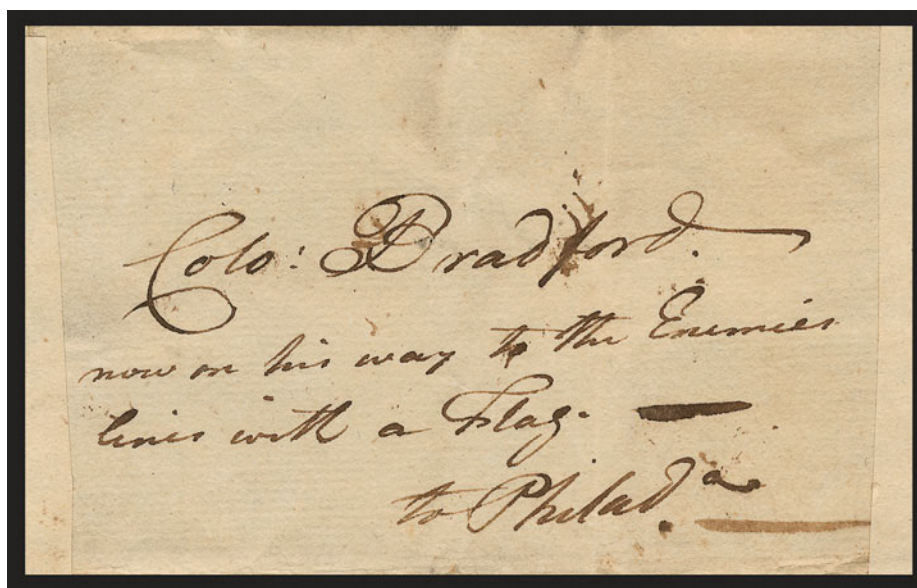 Colo: Bradford.
now on his way to the Enemies
lines with a Flag. —
to Philad.ª —